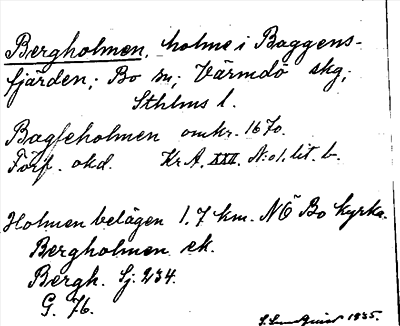 Bergholmen, holme i Baggens-
fjärden; Bo sn; Värmdö skg;
Sthlms l.
Bagseholmen omkr. 1670.
Förf. okd. Kr. A. XXX. A: o1. lit. b.
Holmen belägen 1.7 km. NÖ Bo kyrka.
Bergholmen ek.
Bergh. Sj: 234.
G. 76.
1935.